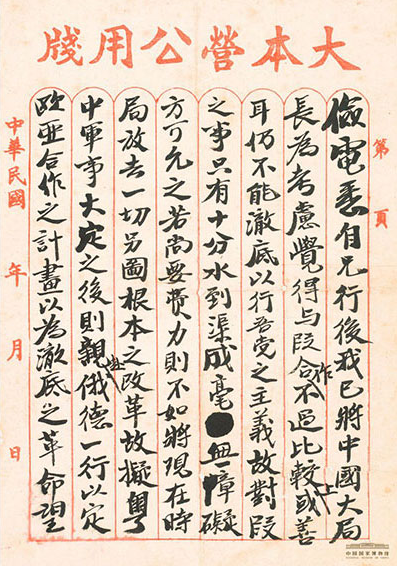 大本營公用牋
第 頁
儉電悉自兄行後我已將中國大局
長為考慮覺得与段合作不過比較上或善
耳仍不能澈底以行吾党之主義故對段
之事只有十分水到渠成毫無障礙
方可允之若尚要費力則不如將現在時
局放去一切另圖根本之改革故擬粵
中軍事大定之後則親往俄德一行以定
歐亞合作之計畫以為澈底之革命望
中華民國 年 月 日
中国国家博物馆